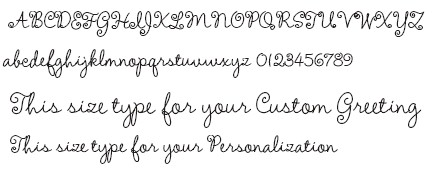 ABCDEFGHIJKLMNOPQRSTUVWXYZ
abcdefghijklmnopqrstuvwxyz 0123456789
This size type for your Custom Greeting
This size type for your Personalization